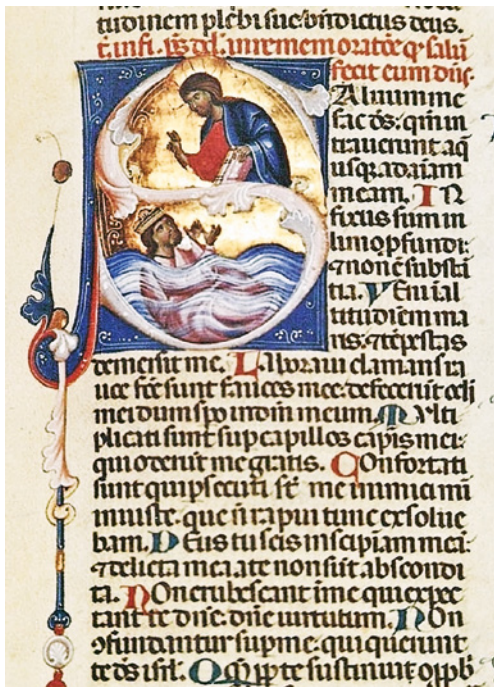 tudinem plebi sue: bndictus deus.
t. infi. ps del. in rememoratōe q salū
fecit eum dns.
SAluum me
fac ds: qm in
trauerunt aq
usq; ad aiam
meam. IN
fixus sum in
limo pfundi:
⁊ non ē substā
tia. VEni ī al
titudiem ma
ris: ⁊ tēpestas
demersit me. Laboraui clamans ra
uce fce sunt fauces mee: defecerūt ocli
mei dum spo in dm meum. Mvlti
plicati sunt sup capillos capis mei:
qui oderūt me gratis. COnfortati
sunt qui psecuti st me inimici mi
iniuste: que n rapui tunc exsolue
bam. DEus tu scis insipiam meā:
⁊ delicta mea a te non sūt abscondi
ta. NOn erubescant ī me qui expec
tant te dne: dne uirtutum. NOn
ɔfundantur sup me: qui querunt
te ds isrl. Qm ppt te sustinui oppb